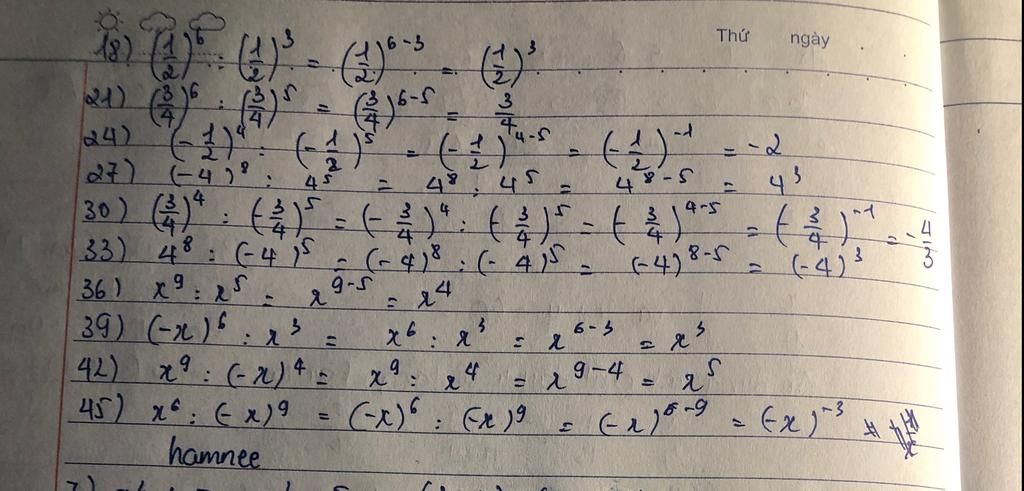 Thứ ngày
18) (1/2)^6 : (1/2)^3 = (1/2)^{6-3} = (1/2)^3
21) (3/4)^6 : (3/4)^5 = (3/4)^{6-5} = 3/4
24) (-1/2)^4 : (-1/2)^5 = (-1/2)^{4-5} = (-1/2)^{-1} = -2
27) (-4)^8 : 4^5 = 4^8 : 4^5 = 4^{8-5} = 4^3
30) (3/4)^4 : (-3/4)^5 = (-3/4)^4 : (-3/4)^5 = (-3/4)^{4-5} = (-3/4)^{-1} = -4/3
33) 4^8 : (-4)^5 = (-4)^8 : (-4)^5 = (-4)^{8-5} = (-4)^3
36) x^9 : x^5 = x^{9-5} = x^4
39) (-x)^6 : x^3 = x^6 : x^3 = x^{6-3} = x^3
42) x^9 : (-x)^4 = x^9 : x^4 = x^{9-4} = x^5
45) x^6 : (-x)^9 = (-x)^6 : (-x)^9 = (-x)^{6-9} = (-x)^{-3}
hamnee